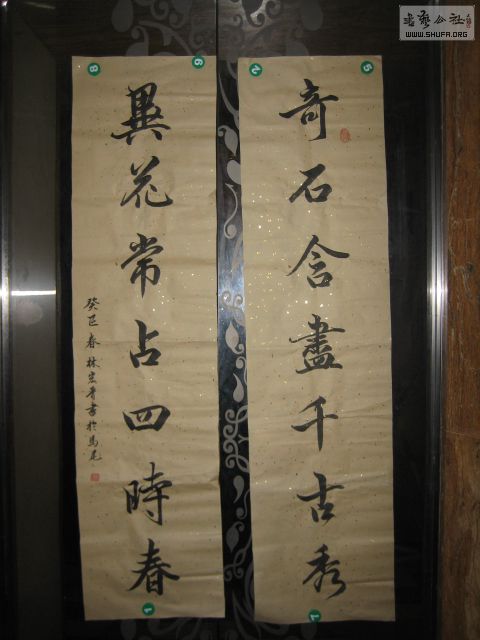 奇石含盡千古秀
異花常占四時春
癸巳春林宏晉書於馬尾
書藝公社
WWW.SHUFA.ORG
5
2
7
6
8
1